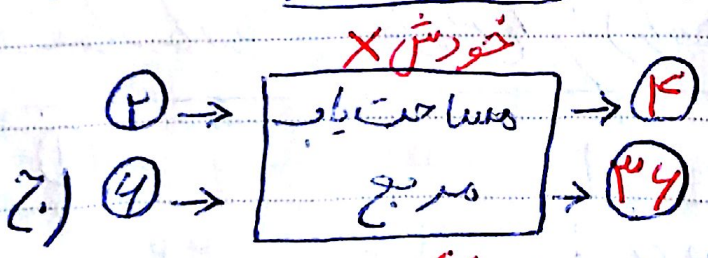 خودش ×
۲ → مساحت یاب → ۴
ج) ۶ → مربع → ۳۶